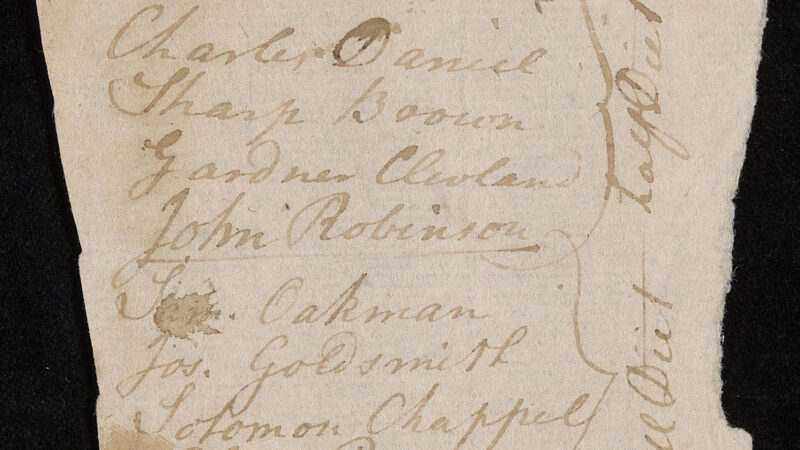 Charles Daniel
Sharp Brown
Gardner Cleoland
John Robinson
Sam. Oakman
Jos. Goldsmith
Solomon Chappel
half Diet
Diet